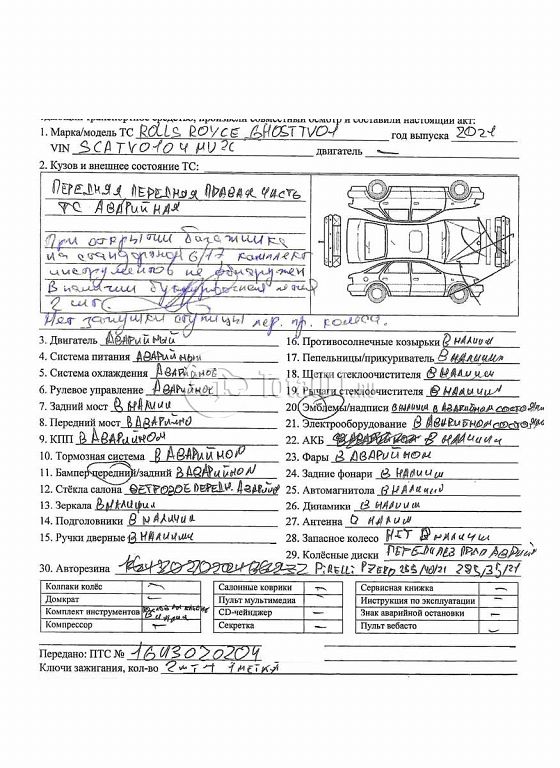 дующий транспортное средство, произвели совместный осмотр и составили настоящий акт:
1. Марка/модель ТС ROLLS ROYCE GHOST TV01 год выпуска 2021
VIN SCATV0104MU2C двигатель —
2. Кузов и внешнее состояние ТС:
ПЕРЕДНЯЯ ПЕРЕДНЯЯ ПРАВАЯ ЧАСТЬ
ТС АВАРИЙНАЯ
При открытии багажника
на комплект
инструментов не обнаружен
В наличии
2 шт.
Нет заглушки ступицы пер. пр. колеса.
3. Двигатель АВАРИЙНЫЙ
4. Система питания АВАРИЙНЫЙ
5. Система охлаждения АВАРИЙНОЕ
6. Рулевое управление АВАРИЙНОЕ
7. Задний мост В НАЛИЧИИ
8. Передний мост В АВАРИЙНО
9. КПП В АВАРИЙНОМ
10. Тормозная система В АВАРИЙНОМ
11. Бампер передний/задний В АВАРИЙНОМ
12. Стёкла салона ПЕРЕДН. АВАРИЙН
13. Зеркала В НАЛИЧИИ
14. Подголовники В НАЛИЧИИ
15. Ручки дверные В НАЛИЧИИ
16. Противосолнечные козырьки В НАЛИЧИИ
17. Пепельницы/прикуриватель В НАЛИЧИИ
18. Щетки стеклоочистителя В НАЛИЧИИ
19. Рычаги стеклоочистителя В НАЛИЧИИ
20. Эмблемы/надписи В НАЛИЧИИ В АВАРИЙНОМ
21. Электрооборудование В АВАРИЙНОМ
22. АКБ В НАЛИЧИИ
23. Фары В АВАРИЙНОМ
24. Задние фонари В НАЛИЧИИ
25. Автомагнитола В НАЛИЧИИ
26. Динамики В НАЛИЧИИ
27. Антенна В НАЛИЧИИ
28. Запасное колесо НЕТ В НАЛИЧИИ
29. Колёсные диски АВАРИЙ
30. Авторезина PIRELLI P ZERO 255/40/21 285/35/21
Колпаки колёс —
Домкрат —
Комплект инструментов
Компрессор —
Салонные коврики —
Пульт мультимедиа —
CD-чейнджер —
Секретка —
Сервисная книжка —
Инструкция по эксплуатации —
Знак аварийной остановки —
Пульт вебасто —
Передано: ПТС № 164302020704
Ключи зажигания, кол-во 2 шт + 1 МЕТКА